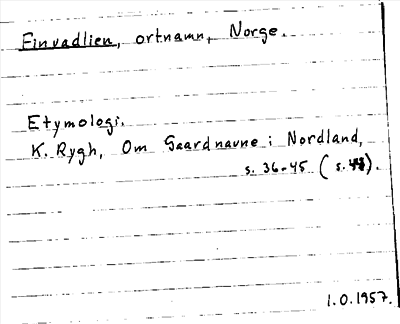 Einvadlien, ortnamn, Norge.
Etymologi.
K. Rygh, Om Gaardnavne i Nordland,
s. 36-45 (s. 44).
1.0.1957.